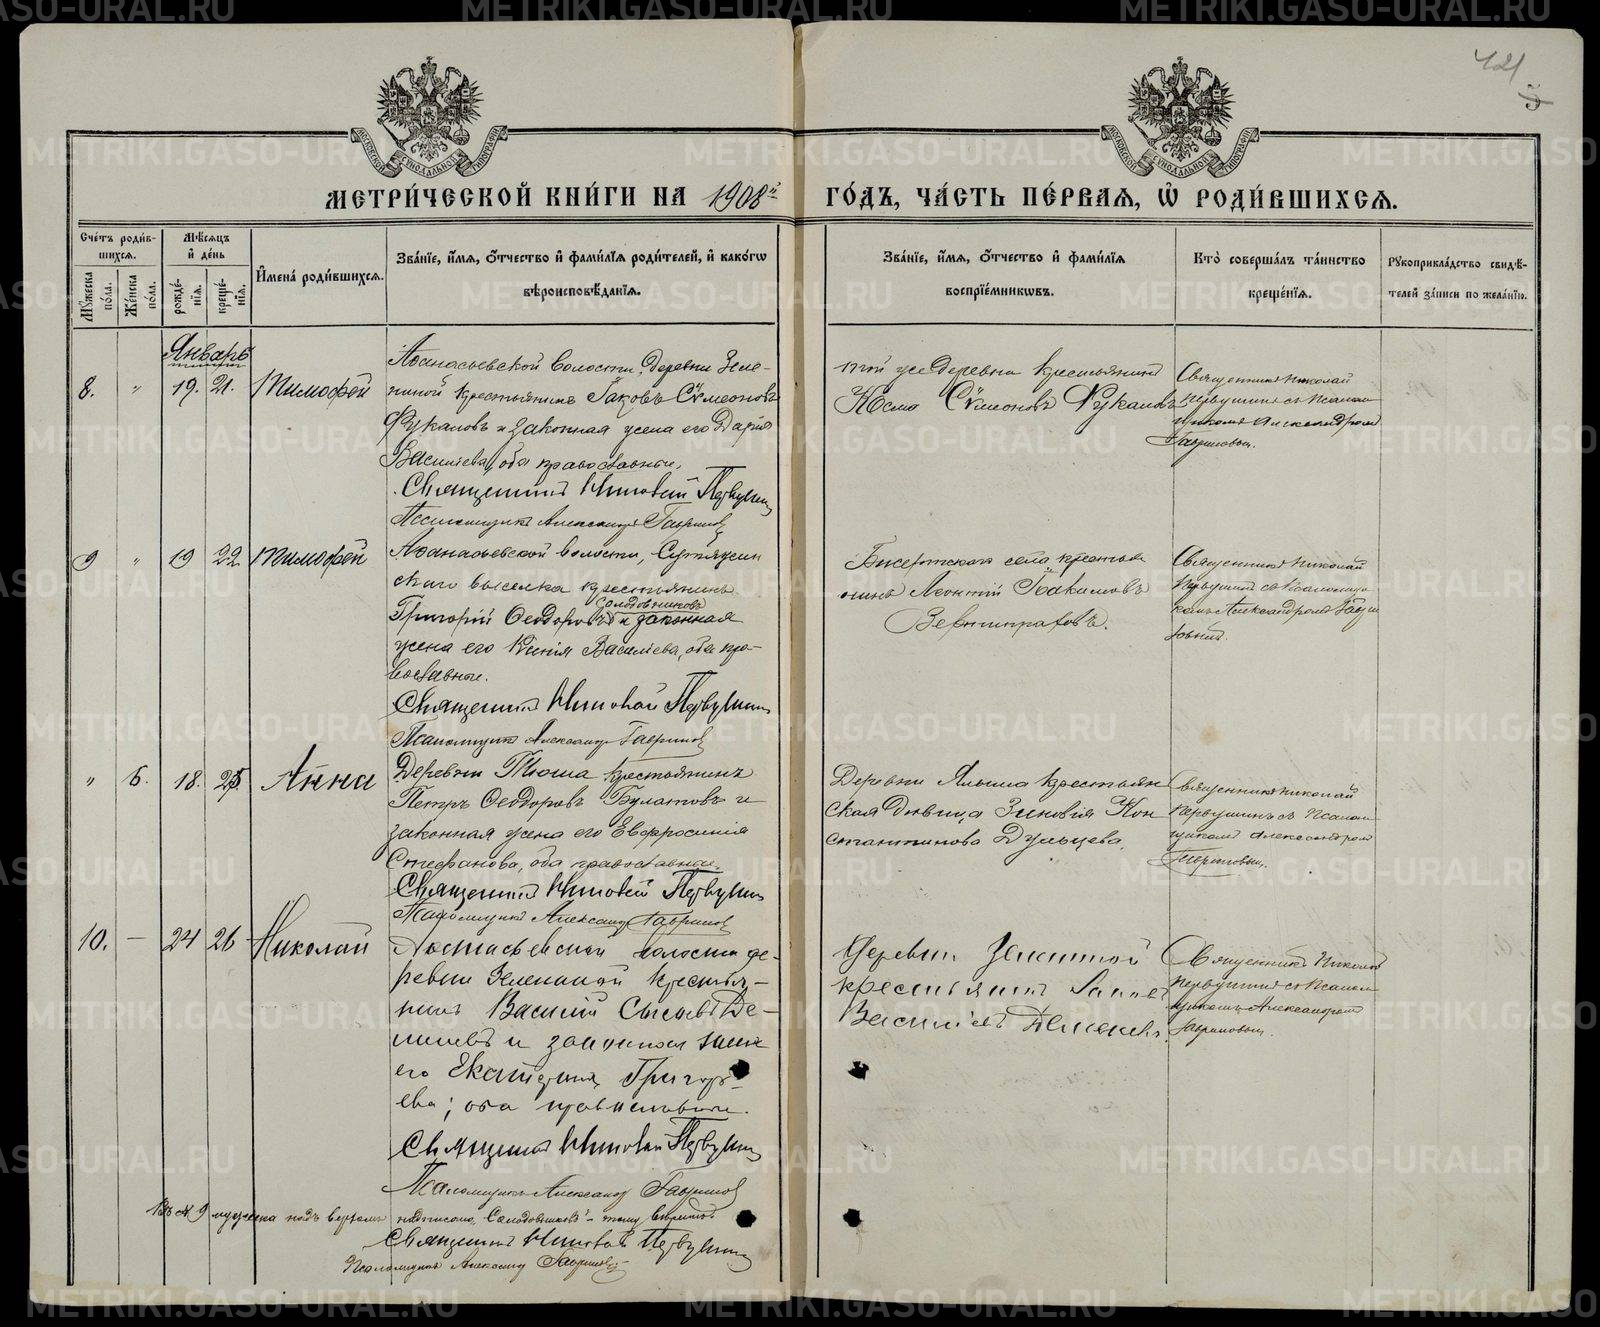 421
5
МЕТРИ́ЧЕСКОЙ КНИ́ГИ НА 1908й ГО́ДЪ, ЧА́СТЬ ПЕ́РВАЯ, Ѡ҆ РОДИ́ВШИХСѦ.
Сче́тъ роди́в-
шихсѧ.
Мѣ́сѧцъ
и҆ де́нь
Мꙋ́жеска по́ла.
Же́нска по́ла.
рожде́-
нїѧ.
креще́-
нїѧ.
И҆мена̀ роди́вшихсѧ.
Зва́нїе, и҆́мѧ, ѻ҆́тчество и҆ фами́лїѧ роди́телей, и҆ како́гѡ
вѣроисповѣ́данїѧ.
Зва́нїе, и҆́мѧ, ѻ҆́тчество и҆ фами́лїѧ
воспрїе́мникѡвъ.
Кто̀ соверша́лъ та́инство
креще́нїѧ.
Рꙋкоприкла́дство свидѣ́-
телей за́писи по жела́нїю.
Январь
8. " 19. 21. Тимофей
Афанасьевской волости, деревни Зеле-
ниной крестьянинъ Іаковъ Сѵмеоновъ
Фукаловъ и законная жена его Дарія
Василіева, оба православные.
Священникъ Николай Первушинъ
Псаломщикъ Александръ Гавриловъ
той же деревни крестьянинъ
Косма Сѵмеоновъ Фукаловъ
Священникъ Николай
Первушинъ съ псалом
щикомъ Александромъ
Гавриловым.
9 " 19 22 Тимофей
Афанасьевской волости,
скаго выселка крестьянинъ
Солодовниковъ
Григорій Ѳеодоровъ и законная
жена его Ксенія Василіева, оба пра-
вославные.
Священникъ Николай Первушинъ
Псаломщикъ Александръ Гавриловъ
Бисертскаго села крестья
нинъ Леонтій Іоакимовъ
Священникъ Николай
Первушинъ съ псаломщи
комъ Александромъ Гаври
ловымъ
" 6. 18. 25 Анна
Деревни Тюша крестьянинъ
Петръ Ѳеодоровъ Булатовъ и
законная жена его Евфросинія
Стефанова, оба православные.
Священникъ Николай Первушинъ
Псаломщикъ Александръ Гавриловъ
Деревни крестьян
ская дѣвица Зиновія Кон
стантинова Дульцева.
Священникъ Николай
Первушинъ съ псалом
щикомъ Александромъ
Гавриловым.
10. — 24 26 Николай
Афанасьевской волости де-
ревни Зелениной крестья-
нинъ Василій Сысоевъ Де-
и законная жена
его Екатерина Григорь-
ева; оба православные.
Священникъ Николай Первушинъ
Псаломщикъ Александръ Гавриловъ
деревни Зелениной
крестьянинъ
Василіевъ
Священникъ Николай
Первушинъ съ псалом
щикомъ Александромъ
Гавриловым.
Въ № 9 мужеска надъ верхомъ надписано, „Солодовниковъ" – тому вѣрить.
Священникъ Николай Первушинъ
Псаломщикъ Александръ Гавриловъ
METRIKI.GASO-URAL.RU